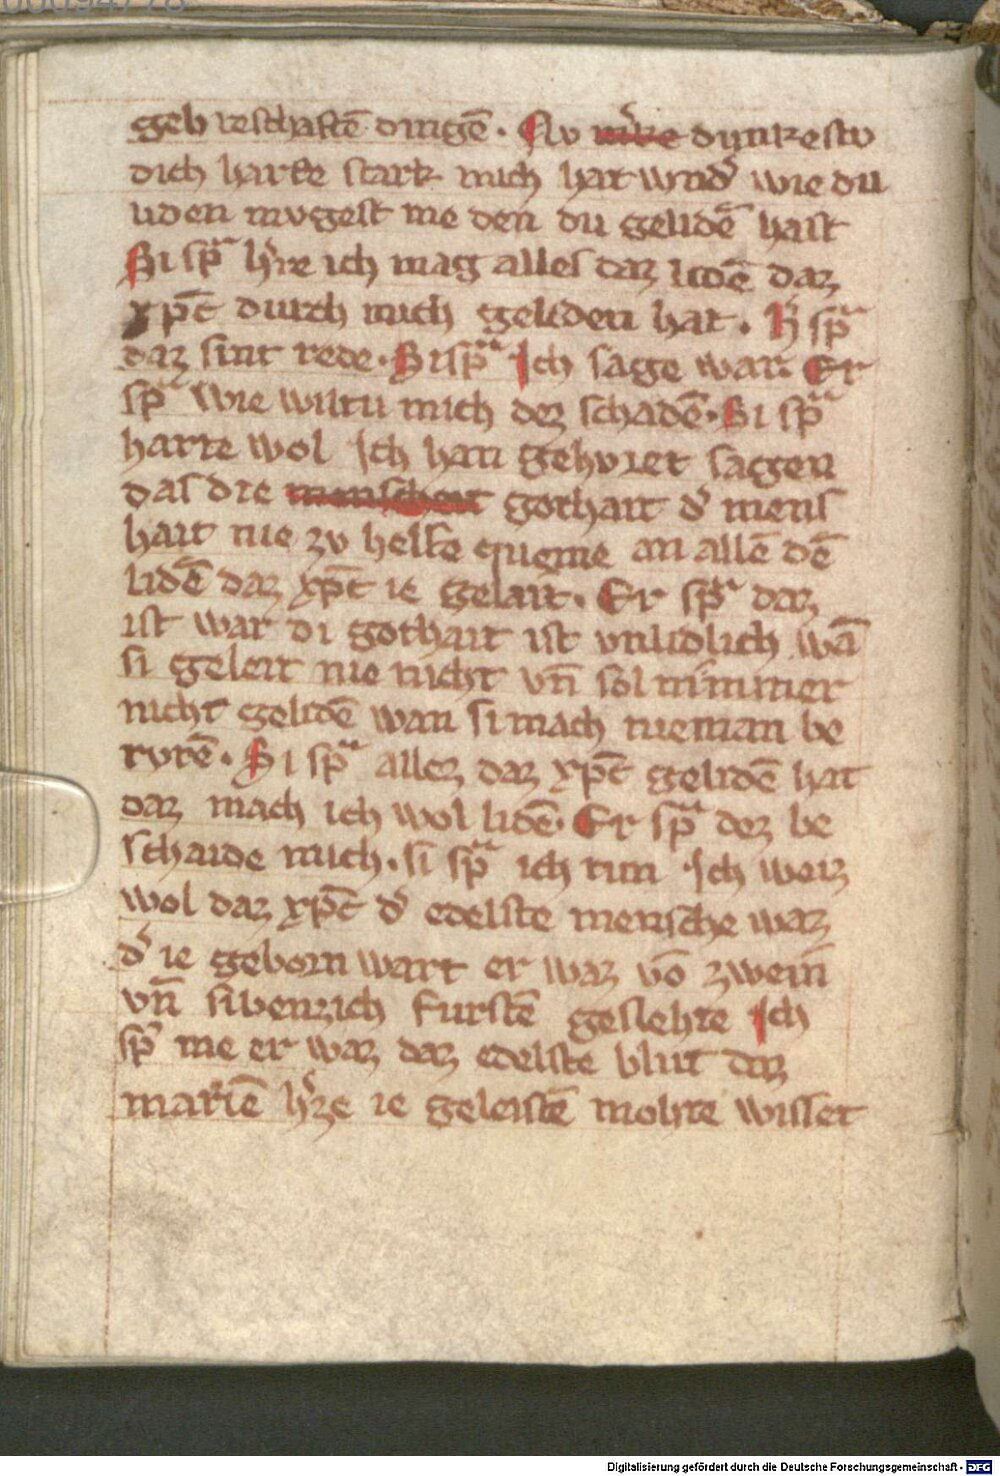 gebreschaftē dingē. Nv mʼke dunkestv
dich harte stark mich hat wndʼ wie du
liden mvgest me den du gelidē hast
Si spᵃ hʼre ich mag alles daz lidē daz
xpc̄ durch mich geliden hat. Er spᵃ
daz sint rede. Si spᵃ Ich sage war. Er
spᵃ wie wiltu mich dez schadē. Si spᵃ
harte wol Ich han gehoret sagen
das die menscheit gothait dʼ mens
hait nie zv helfe queme an allē dē
lidē daz xpc̄ ie gelait. Er spᵃ daz
ist war di gothait ist vnlidlich wā
si geleit nie nicht vn̄ sol nimmer
nicht gelidē wan si mach nieman be
rvrē. Si spᵃ allez daz xpc̄ gelidē hat
daz mach ich wol lidē. Er spᵃ dez be
schaide mich. si spᵃ ich tun Ich weiz
wol daz xpc̄ dʼ edelste mensche waz
dʼ ie geborn wart er waz vō zwein
vn̄ sibenzich furstē geslehte Ich
spʼ me er waz daz edelste blut daz
mariē hʼze ie geleistē mohte wisset
Digitalisierung gefördert durch die Deutsche Forschungsgemeinschaft - DFG